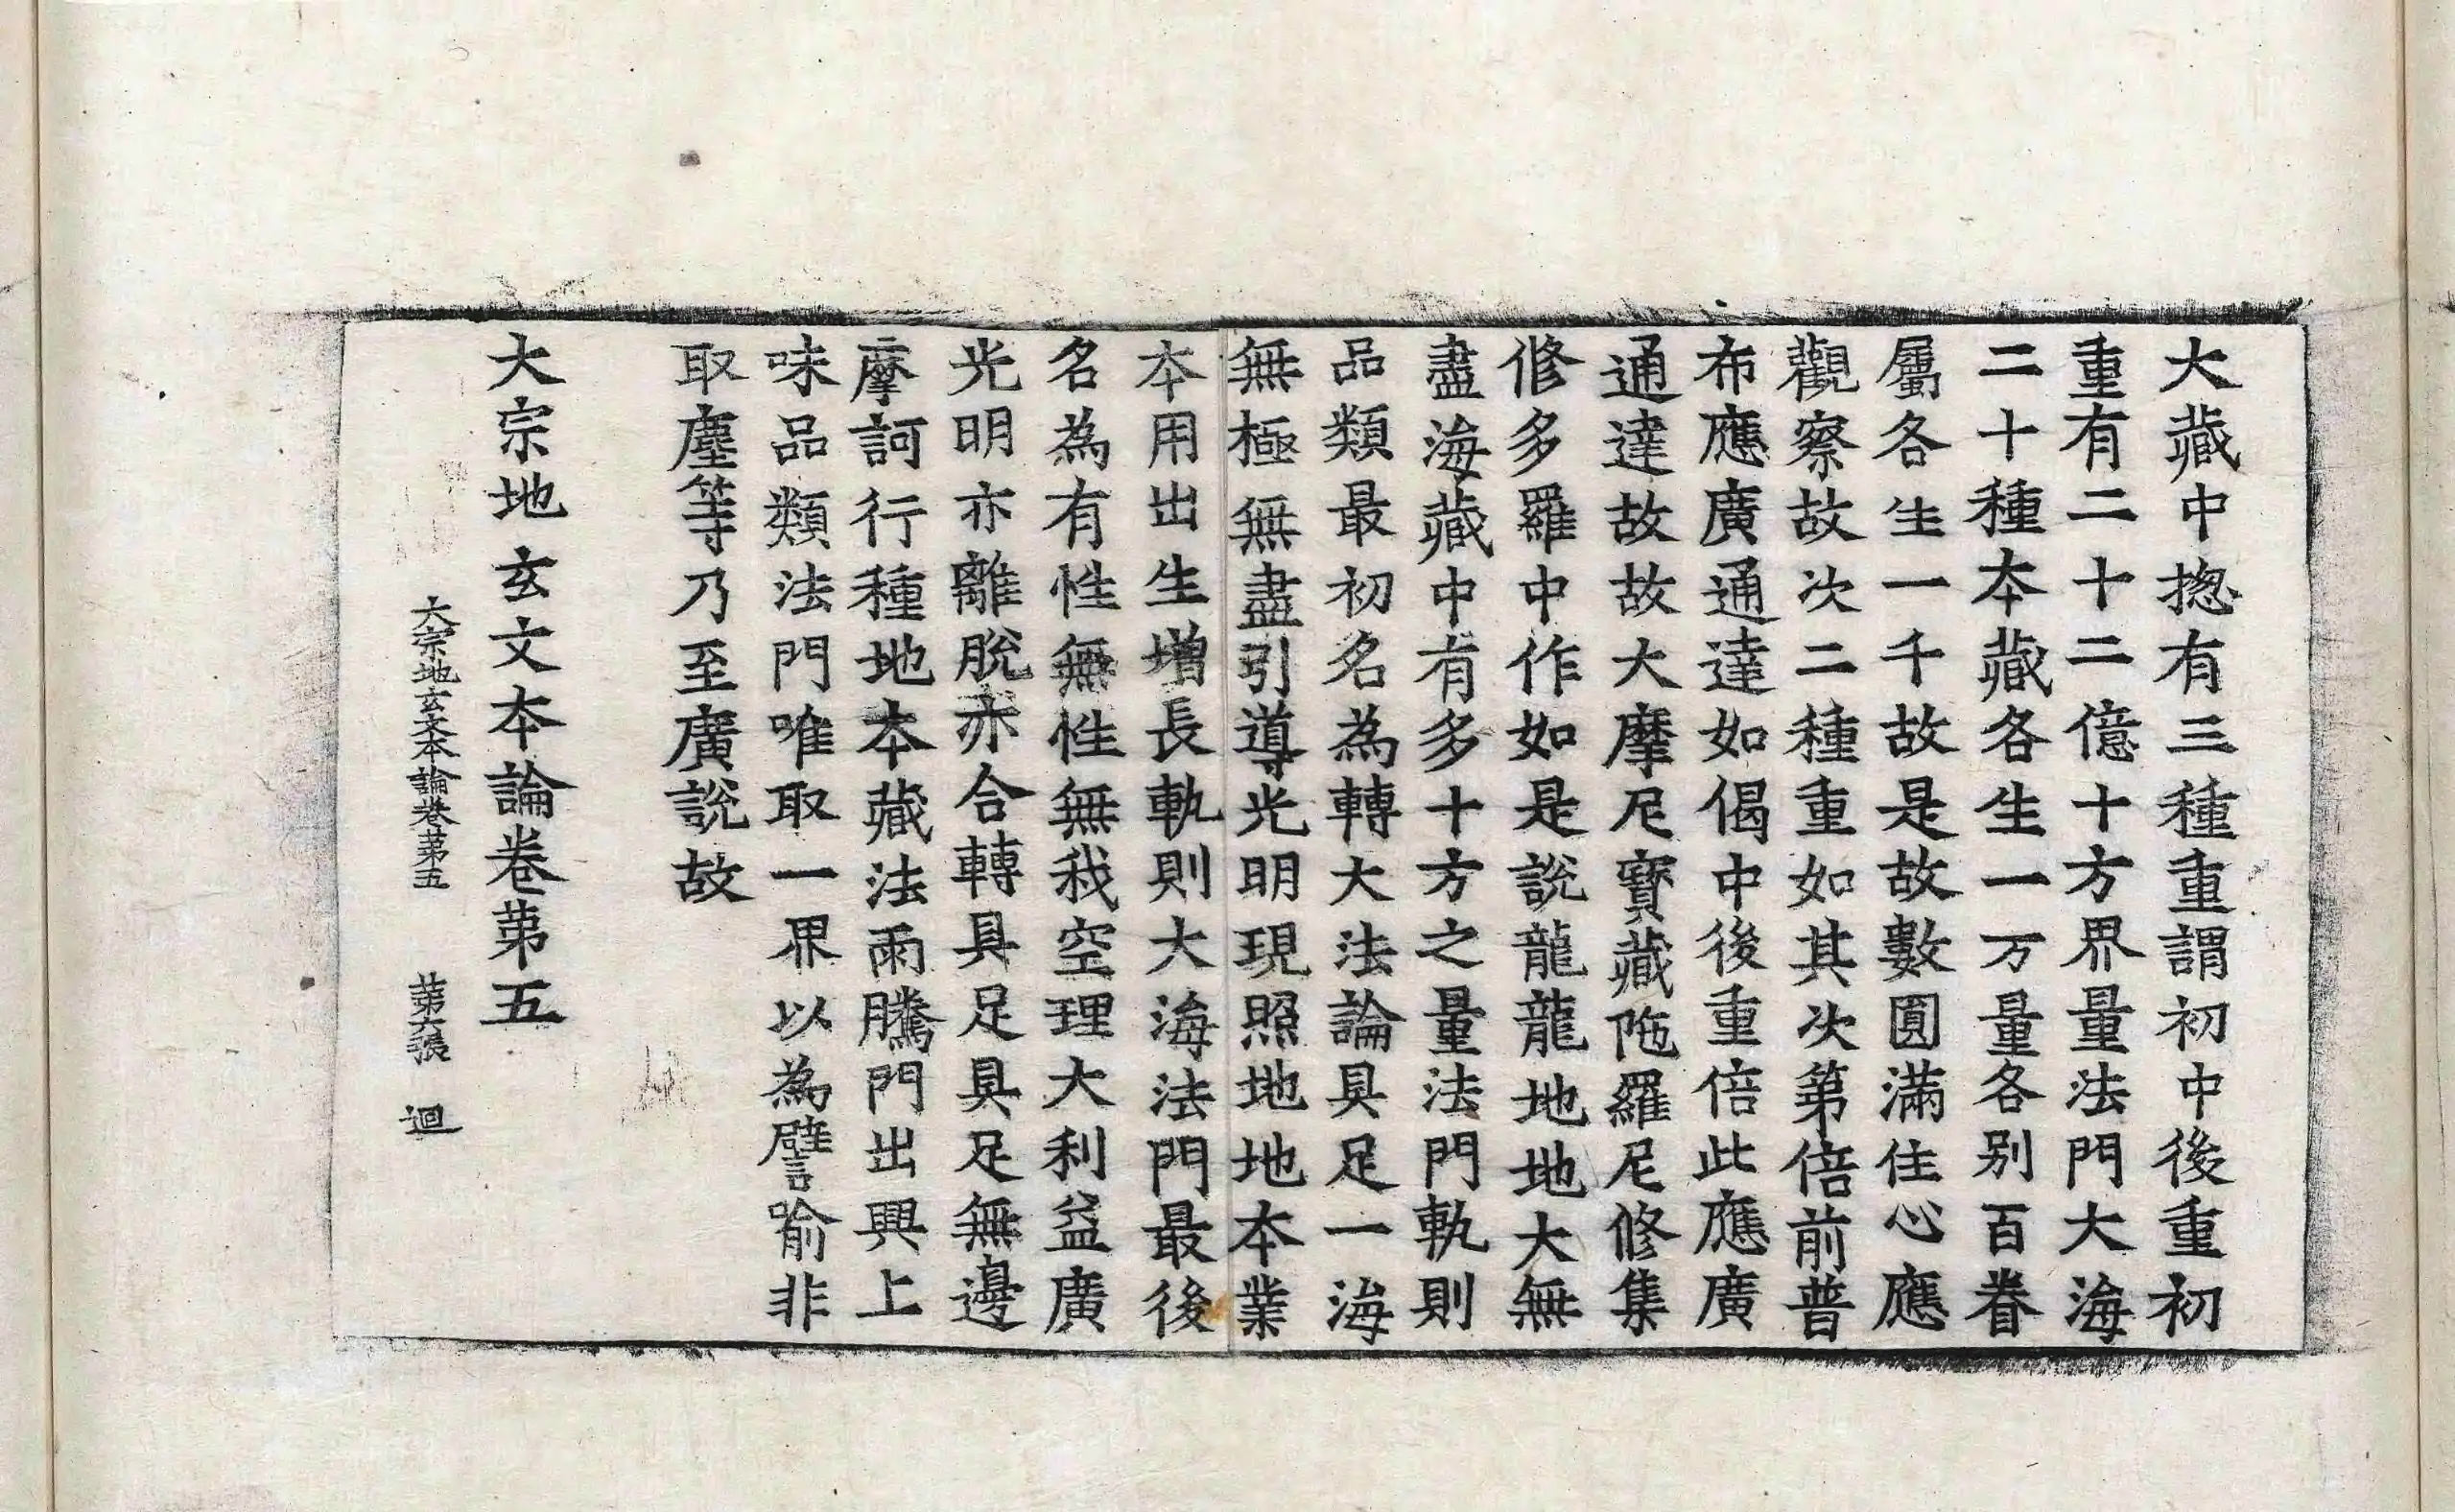 大藏中揔有三種重謂初中後重初
重有二十二億十方界量法門大海
二十種本藏各生一万量各别百眷
屬各生一千故是故數圓滿住心應
觀察故次二種重如其次第倍前普
布應廣通達如偈中後重倍此應廣
通達故故大摩尼寶藏陁羅尼修集
修多羅中作如是說龍龍地地大無
盡海藏中有多十方之量法門軌則
品類最初名為轉大法論具足一海
無極無盡引導光明現照地地本業
本用出生增長軌則大海法門最後
名為有性無性無我空理大利益廣
光明亦離脫亦合轉具足具足無邊
摩訶行種地本藏法雨騰門出興上
味品類法門唯取一界以為譬喻非
取塵等乃至廣說故
大宗地玄文本論卷苐五
大宗地玄文本論卷苐五 苐六張 迴